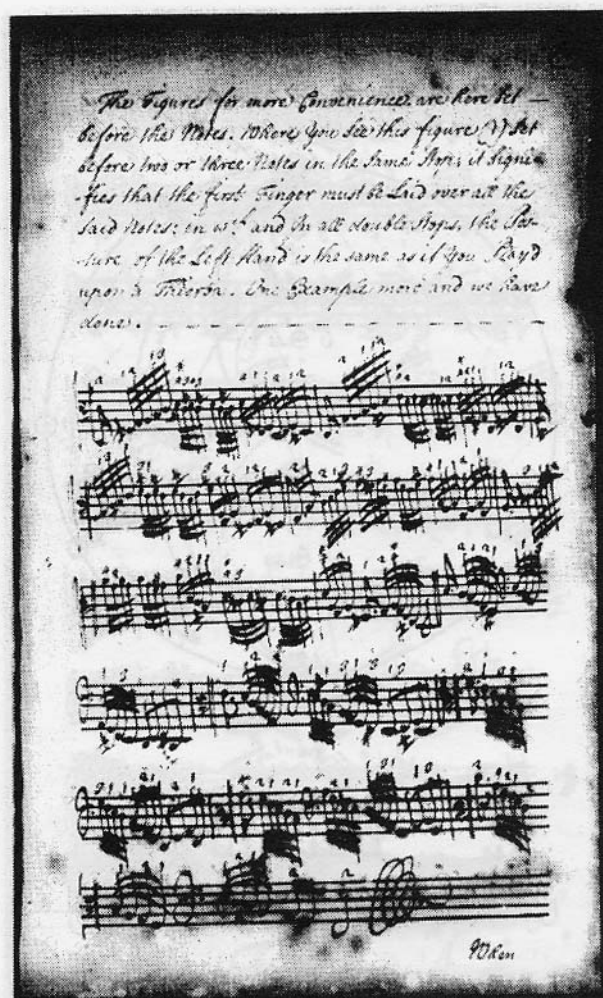 The Figures for more Convenience, are here Set —
before the Notes. Where you See this figure (1) Set
before two or three Notes in the Same Stop; it Signi-
-fies that the first Finger must be Laid over all the
Said Notes; in wch and in all double Stops, the Pos-
-ture of the Left Hand is the same as if you Play'd
upon a Theorba. One Example more and we have
done.
When